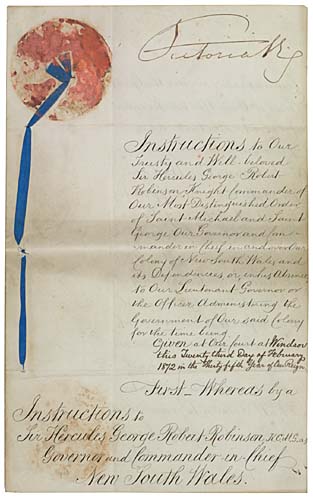 Victoria R
Instructions to Our
Trusty and Well-beloved
Sir Hercules George Robert
Robinson Knight Commander of
Our Most Distinguished Order
of Saint Michael and Saint
George Our Governor and Com-
mander in Chief in and over our
Colony of New South Wales and
its Dependencies or in his Absence
to Our Lieutenant Governor or
the Officer Administering the
Government of Our said Colony
for the time being
Given at Our Court at Windsor
this Twenty third Day of February
1872 in the Thirty fifth Year of Our Reign
First Whereas by a
Instructions to
Sir Hercules George Robert Robinson, K.C.M.G. as
Governor and Commander-in-Chief
New South Wales.